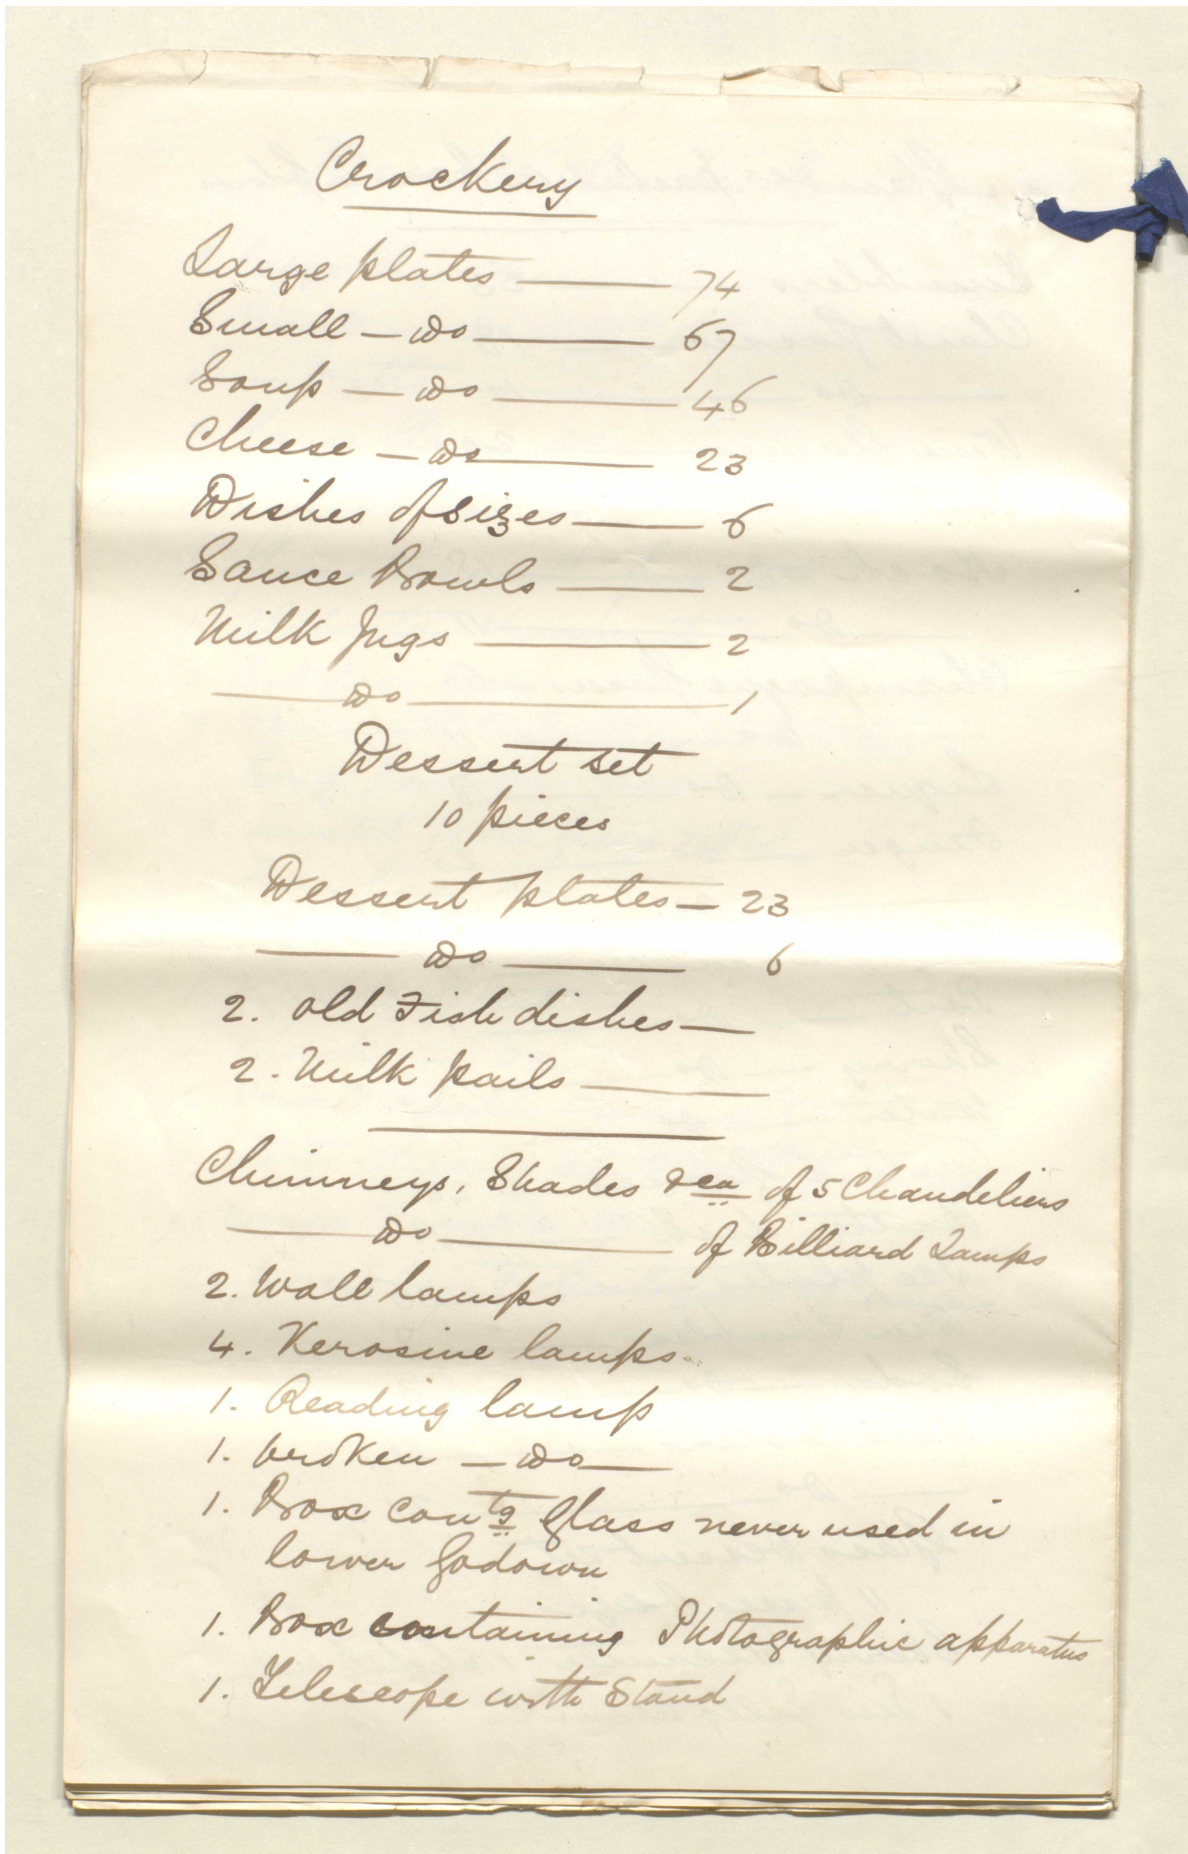 Crockery
Large plates — 74
Small — Do — 67
Soup — Do — 46
Cheese — Do — 23
Dishes of sizes — 6
Sauce Bowls — 2
Milk Jugs — 2
— Do — 1
Dessert set
10 pieces
Dessert plates — 23
— Do — 6
2. Old Fish dishes —
2. Milk pails —
Chimneys, Shades &ca of 5 Chandeliers
— Do — of Billiard Lamps
2. Wall lamps
4. Kerosine lamps
1. Reading lamp
1. broken — Do —
1. Box contg glass never used in
lower Godown
1. Box containing Photographic apparatus
1. Telescope with Stand